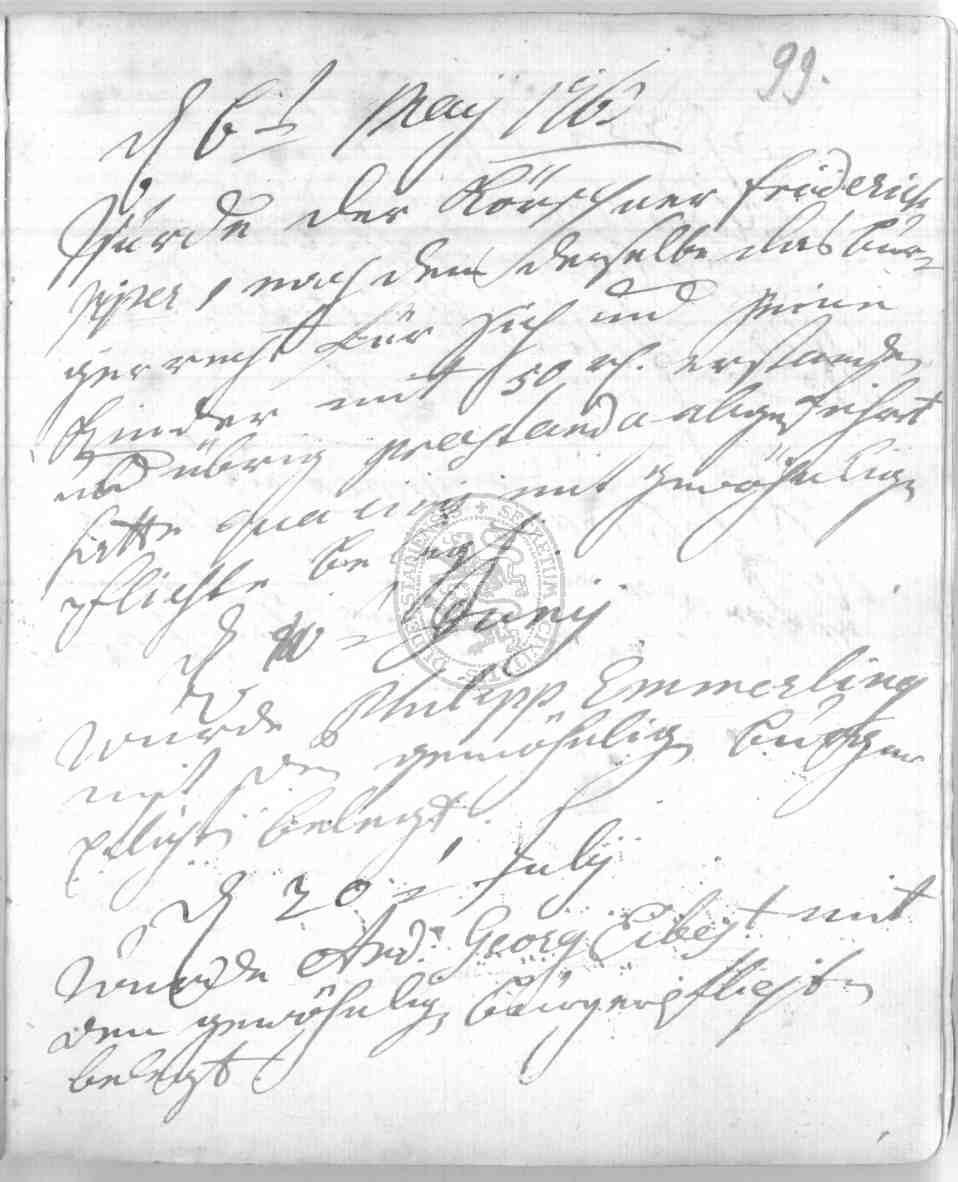 99.
d 6t May 176
Wurde der Körschner Friderich
, nach dem derselbe das bur=
gerrecht für sich und seine
Kinder mit 50 rf. erstanden
und übrig praestanda abgeführt
hatte mit gewöhnlige
pflichte belegt
d Juny
wurde Philipp Emmerling
mit den gewöhnlig burger
pflicht belegt.
d 20t July
wurde And. Georg mit
den gewöhnlig bürgerpflichten
belegt